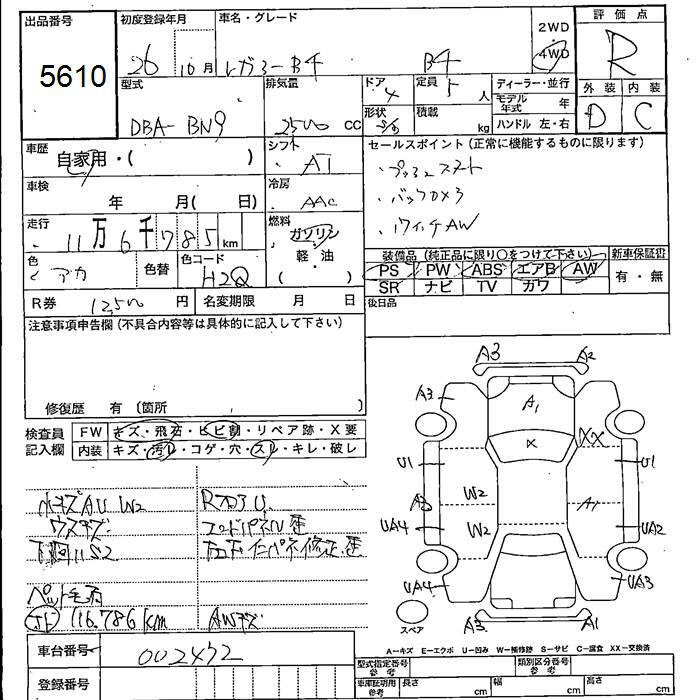 出品番号
5610
初度登録年月
26 10月
車名・グレード
レガシーB4 B4
2WD
4WD
評価点
R
外装 内装
D C
型式
DBA-BN9
排気量
2500 cc
ドア
4
形状
定員
5 人
積載
kg
ディーラー・並行
モデル年式 年
ハンドル 左・右
車歴
自家用・( )
シフト
AT
セールスポイント(正常に機能するものに限ります)
・プッシュスタート
・バックカメラ
車検
年 月( 日)
冷房
AAC
走行
11万6千785km
燃料
ガソリン
軽・油
( )
色
アカ
色替
色コード
H2Q
装備品(純正品に限り〇をつけて下さい)
PS PW ABS エアB AW
SR ナビ TV ガワ
新車保証書
有・無
R券 12500 円
名変期限 月 日
後日品
注意事項申告欄(不具合内容等は具体的に記入して下さい)
修復歴 有 (箇所 )
検査員記入欄
FW キズ・飛石・ヒビ割・リペア跡・X要
内装 キズ・汚レ・コゲ・穴・スレ・キレ・破レ
小キズAU W2
ウスキズ
下廻りS2
ペット毛有
116.786km AWキズ
コードパネル歪
A3 A2
A3
A1
X
XX
U1 U1
W2
A3 A1
UA4 W2 UA2
UA4 UA3
スペア
A3 A1
A-キズ E-エクボ U-凹み W-補修跡 S-サビ C-腐食 XX-交換済
車台番号
002432
登録番号
型式指定番号
参考
類別区分番号
参考
車庫証明用
参考
長さ cm
幅 cm
高さ cm